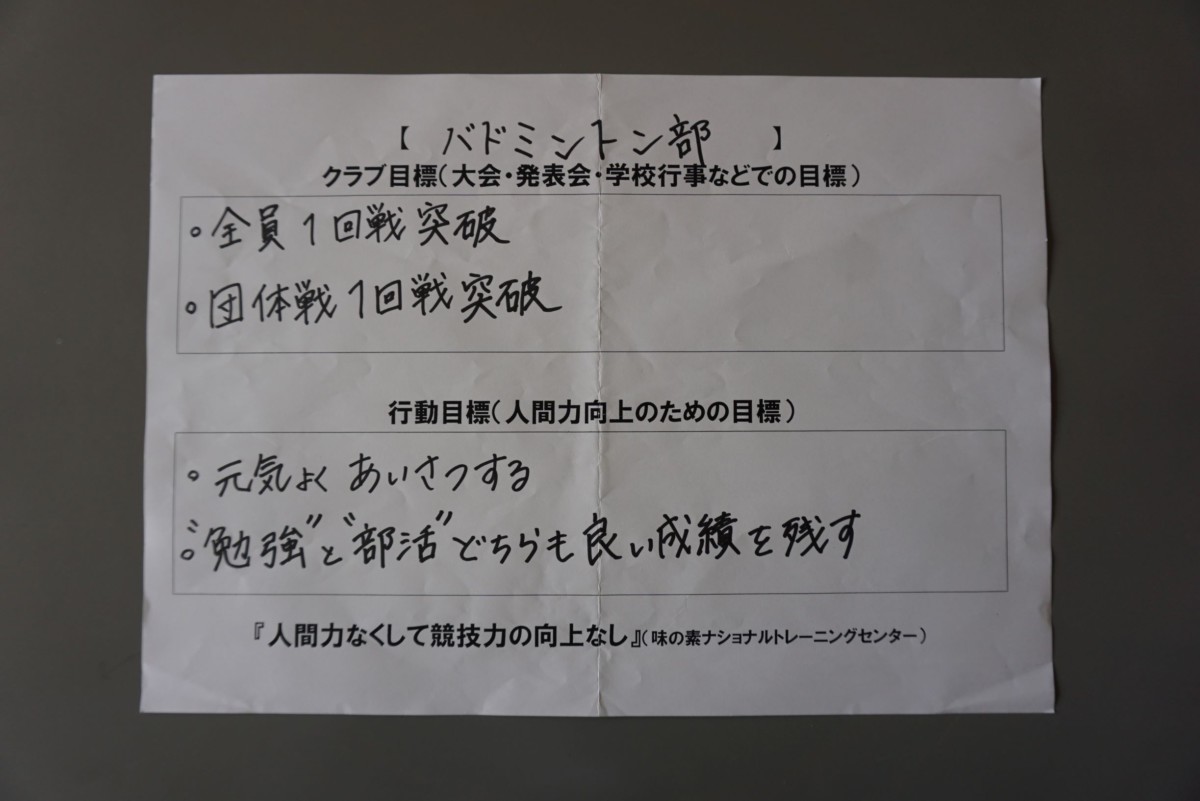 【 バドミントン部 】
クラブ目標(大会・発表会・学校行事などでの目標)
。全員1回戦突破
。団体戦1回戦突破
行動目標(人間力向上のための目標)
。元気よくあいさつする
。“勉強”と“部活”どちらも良い成績を残す
『人間力なくして競技力の向上なし』(味の素ナショナルトレーニングセンター)